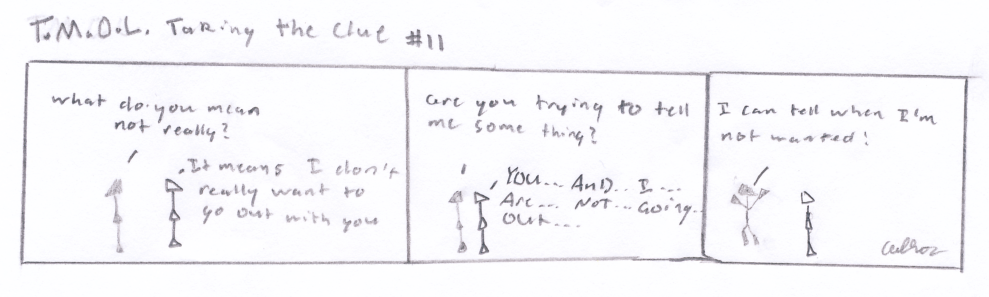 T.M.O.L. Taking the Clue #11
what do you mean
not really?
It means I don't
really want to
go out with you
are you trying to tell
me some thing?
You... And.. I...
Are... Not... Going..
out...
I can tell when I'm
not wanted!